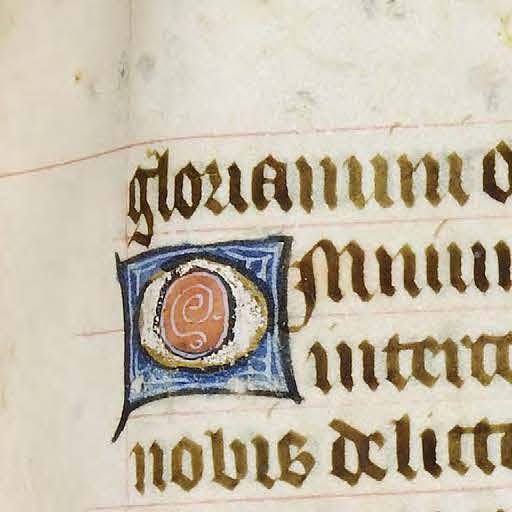 gloriam um
Omnium
interce
nobis de litte